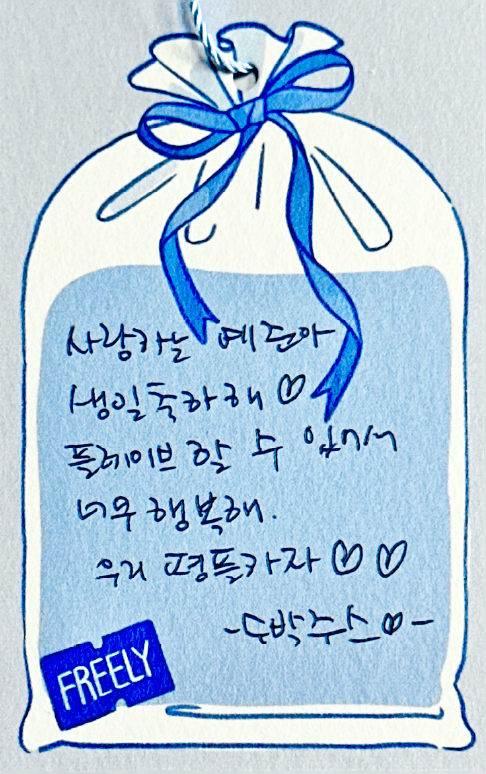 사랑하는 예준아
생일축하해♡
플레이브 할 수 있어서
너무 행복해.
우리 평플하자♡♡
-수박주스♡-
FREELY